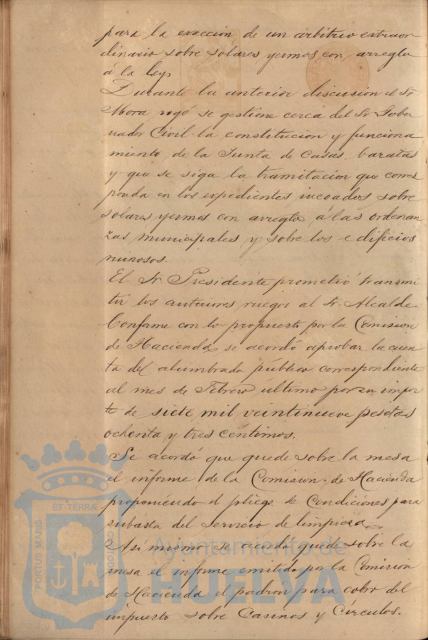 para la exaccion de un arbitrio extraor
dinario sobre solares yermos con arreglo
á la ley.
Durante la anterior discusion el Sr
Mora rogó se gestione cerca del Sr Gober
nador Civil la constitucion y funciona
miento de la Junta de Casas baratas
y que se siga la tramitacion que corres
ponda en los expedientes incoados sobre
solares yermos con arreglo á las ordenan
zas municipales y sobre los edificios
ruinosos.
El Sr Presidente prometió transmi
tir los anteriores ruegos al Sr. Alcalde
Conforme con lo propuesto por la Comision
de Hacienda se acordó aprobar la cuen
ta del alumbrado público correspondiente
al mes de Febrero ultimo por su impor
te de siete mil veintinueve pesetas
ochenta y tres centimos.
Se acordó que quede sobre la mesa
el informe de la Comision de Hacienda
proponiendo el pliego de Condiciones para
subasta del servicio de limpieza
Asi mismo se acordó quede sobre la
mesa el informe emitido por la Comision
de Hacienda el padron para cobro del
impuesto sobre Casinos y Circulos.
PORTUS MARIS ET TERRAE CUSTODIA
Ayuntamiento de
HUELVA